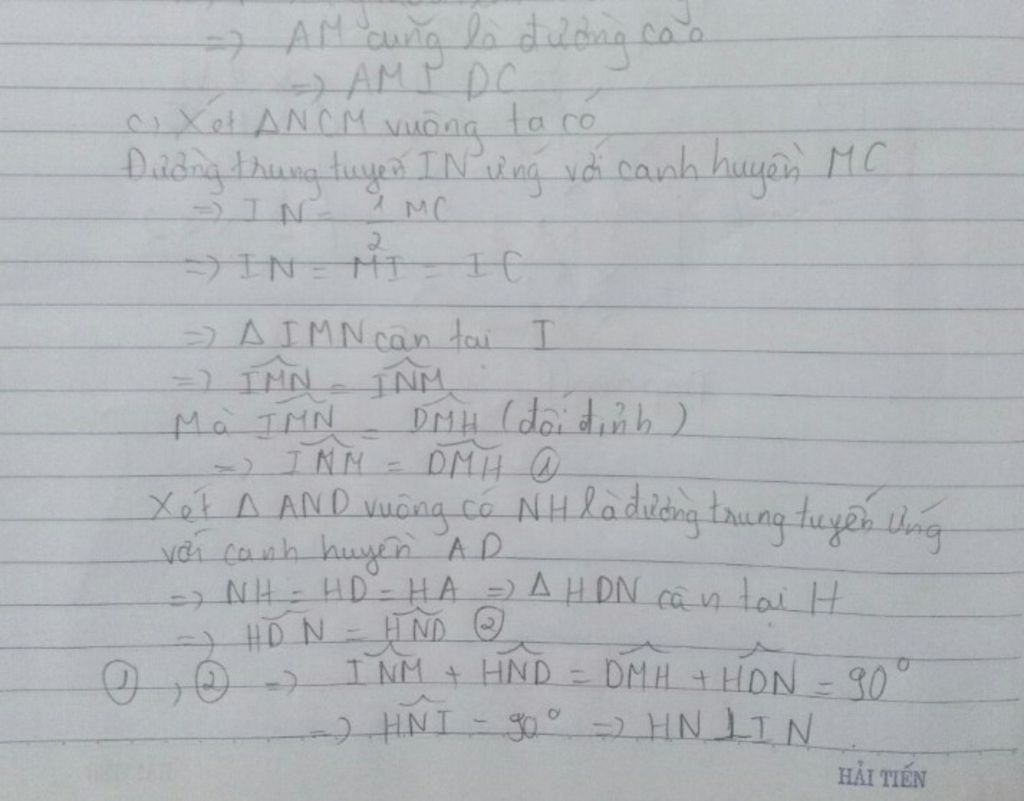 => AM cũng là đường cao
=> AM ⊥ DC
c) Xét ΔNCM vuông ta có
Đường trung tuyến IN ứng với cạnh huyền MC
=> IN = 1/2 MC
=> IN = MI = IC
=> Δ IMN cân tại I
=> \widehat{IMN} = \widehat{INM}
Mà \widehat{IMN} = \widehat{DMH} (đối đỉnh)
=> \widehat{INM} = \widehat{DMH} ①
Xét Δ AND vuông có NH là đường trung tuyến ứng
với cạnh huyền AD
=> NH = HD = HA => Δ HDN cân tại H
=> \widehat{HDN} = \widehat{HND} ②
①, ② => \widehat{INM} + \widehat{HND} = \widehat{DMH} + \widehat{HDN} = 90°
=> \widehat{HNI} = 90° => HN ⊥ IN
HẢI TIẾN